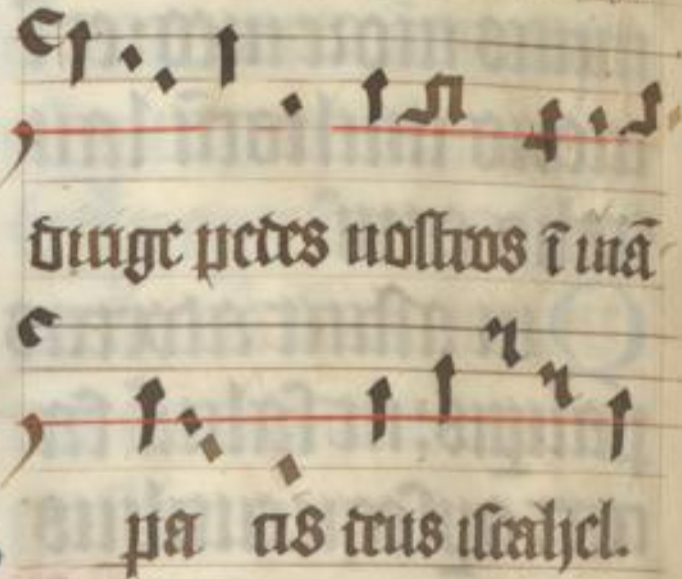 dirige pedes nostros ī uiā
pa cis deus israhel.